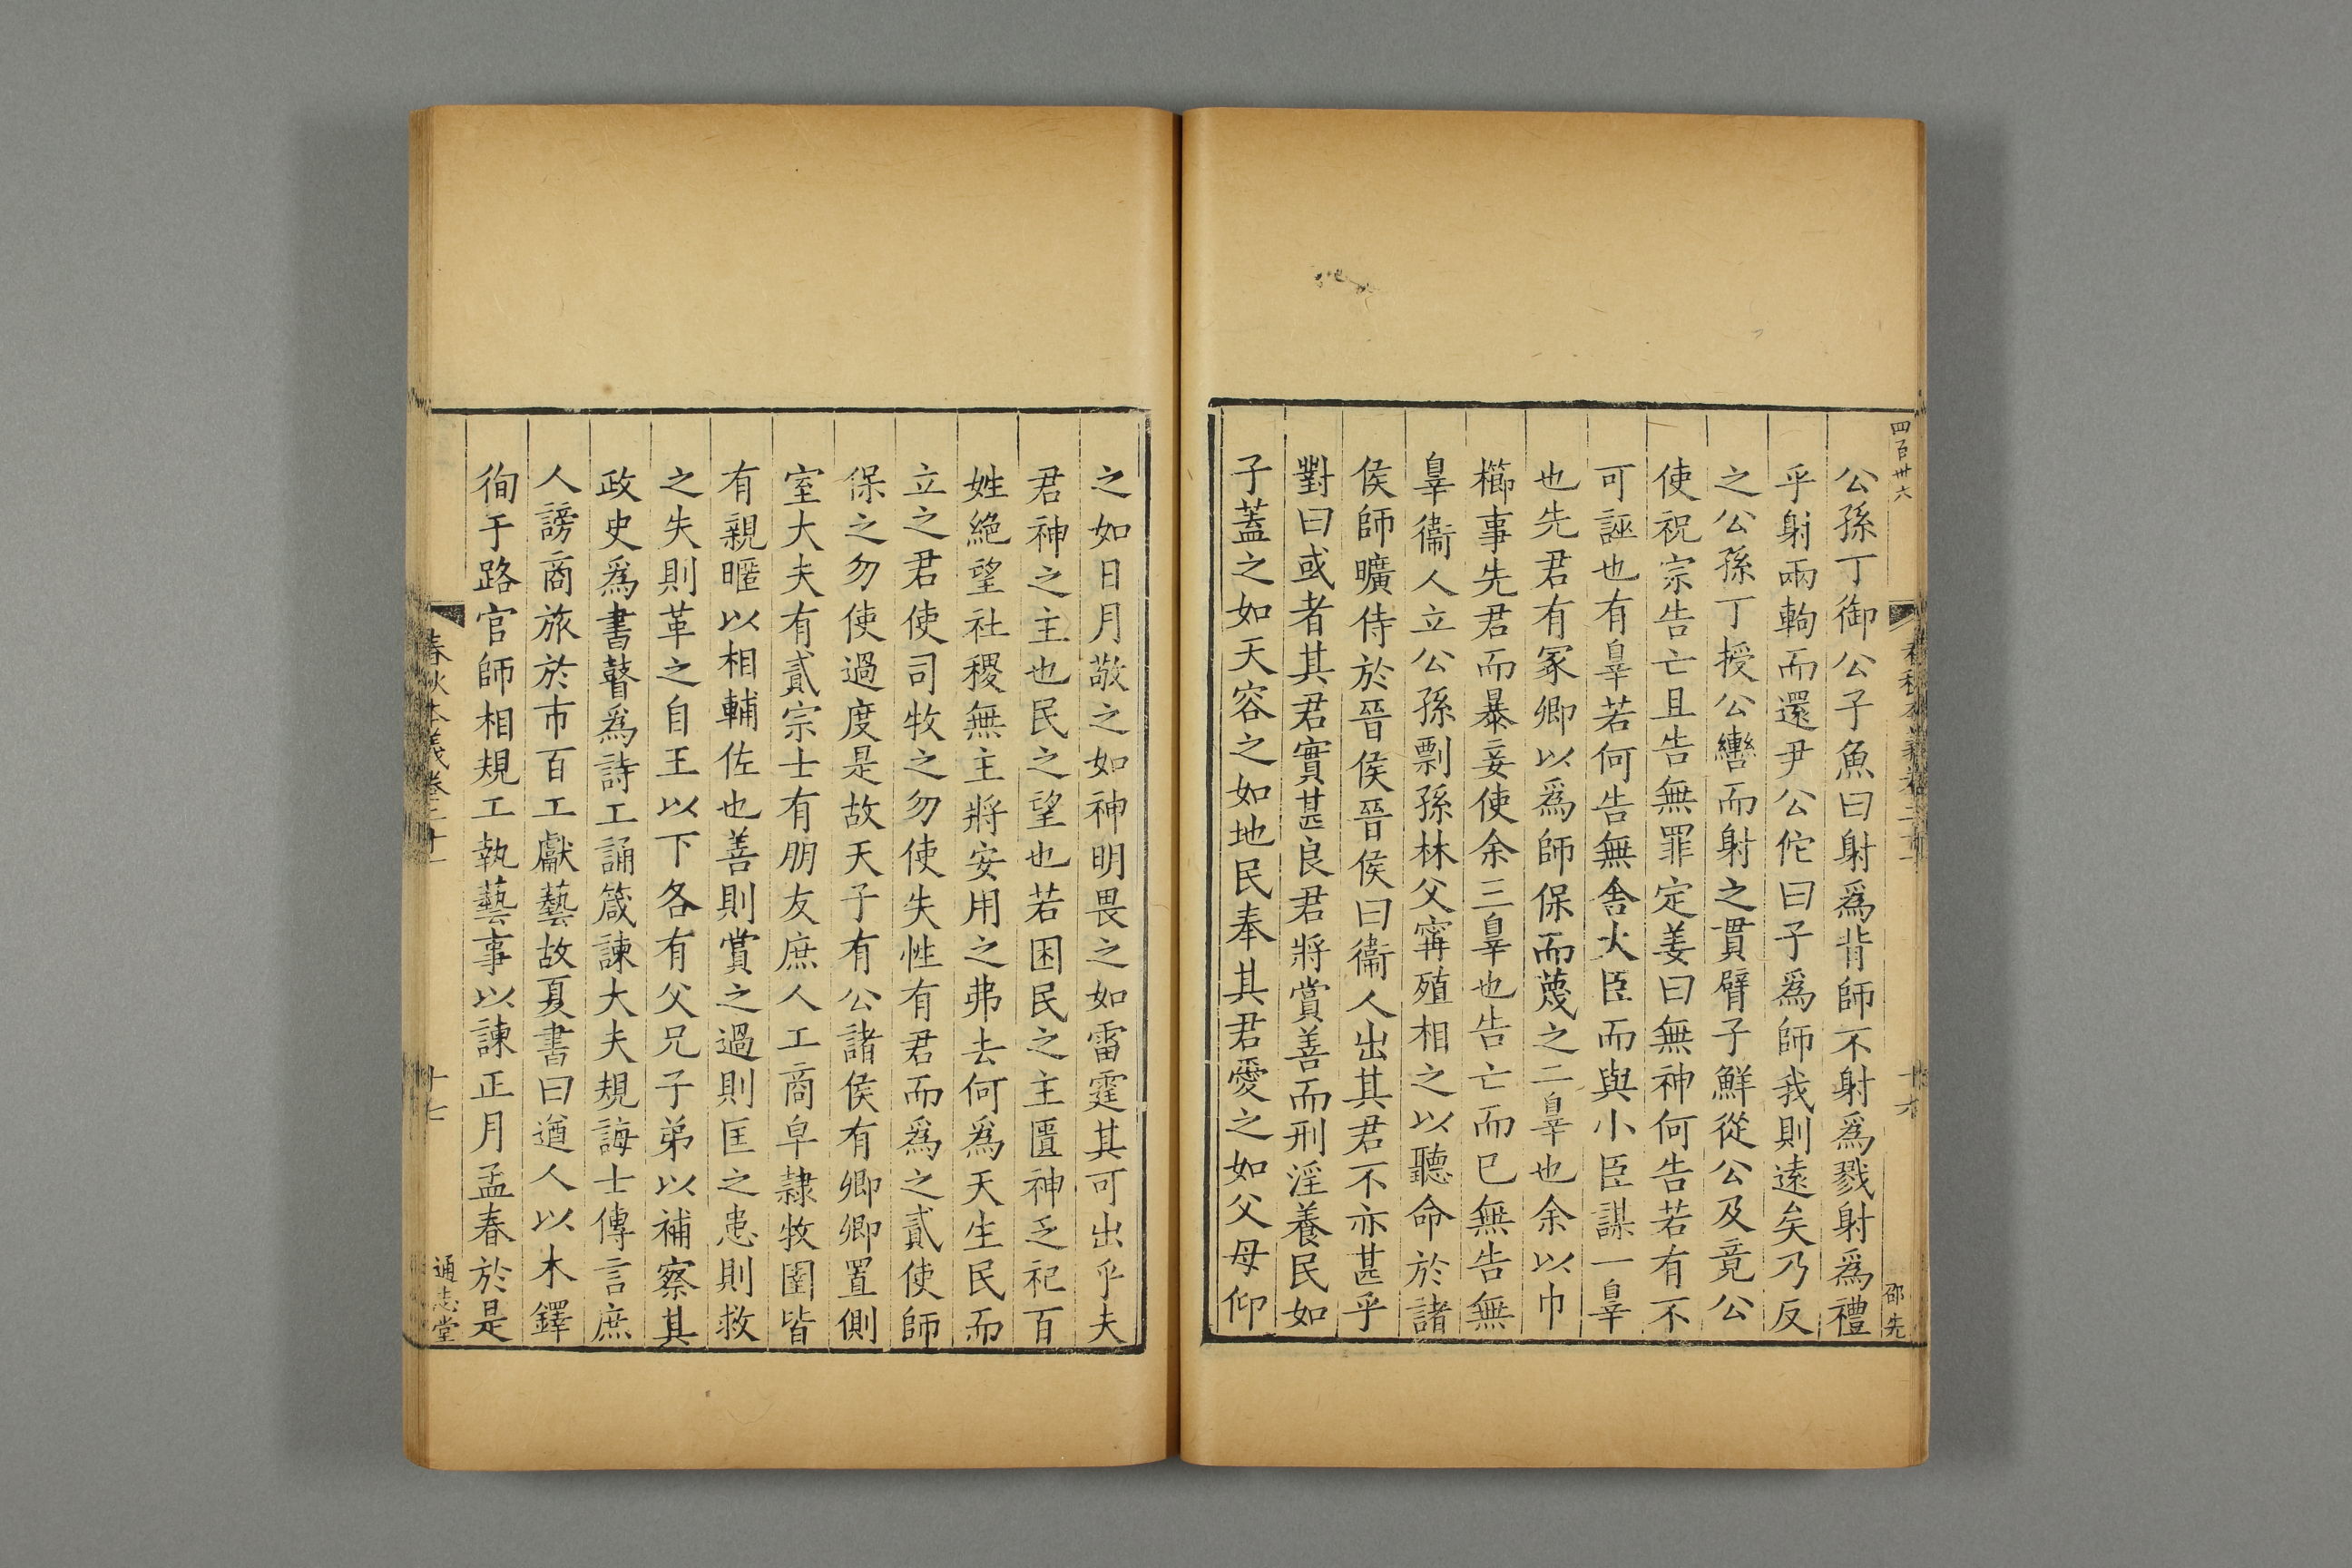 四百卅六
邵先
公孫丁御公子魚曰射爲背師不射爲戮射爲禮
乎射兩軥而還尹公佗曰子爲師我則遠矣乃反
之公孫丁授公轡而射之貫臂子鮮從公及竟公
使祝宗告亡且告無罪定姜曰無神何告若有不
可誣也有辠若何告無舍大臣而與小臣謀一辠
也先君有冢卿以爲師保而蔑之二辠也余以巾
櫛事先君而暴妾使余三辠也告亡而已無告無
辠衞人立公孫剽孫林父甯殖相之以聽命於諸
侯師曠侍於晉侯晉侯曰衞人出其君不亦甚乎
對曰或者其君實甚良君將賞善而刑淫養民如
子蓋之如天容之如地民奉其君愛之如父母仰
之如日月敬之如神明畏之如雷霆其可出乎夫
君神之主也民之望也若困民之主匱神乏祀百
姓絶望社稷無主將安用之弗去何爲天生民而
立之君使司牧之勿使失性有君而爲之貳使師
保之勿使過度是故天子有公諸侯有卿卿置側
室大夫有貳宗士有朋友庶人工商皁隷牧圉皆
有親暱以相輔佐也善則賞之過則匡之患則救
之失則革之自王以下各有父兄子弟以補察其
政史爲書瞽爲詩工誦箴諫大夫規誨士傳言庶
人謗商旅於市百工獻藝故夏書曰遒人以木鐸
徇于路官師相規工執藝事以諫正月孟春於是
春秋本義卷二十一
十七
通志堂